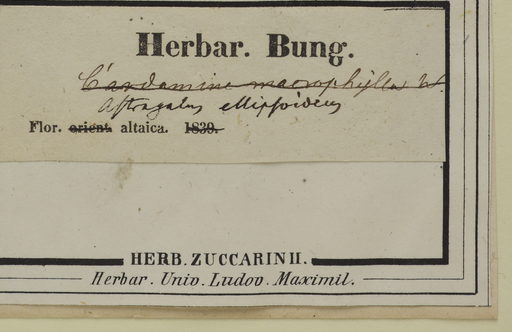 Herbar. Bung.
Cardamine macrophylla W.
Astragalus ellipsoideus
Flor. orient. altaica. 1839.
HERB. ZUCCARINII.
Herbar. Univ. Ludov. Maximil.